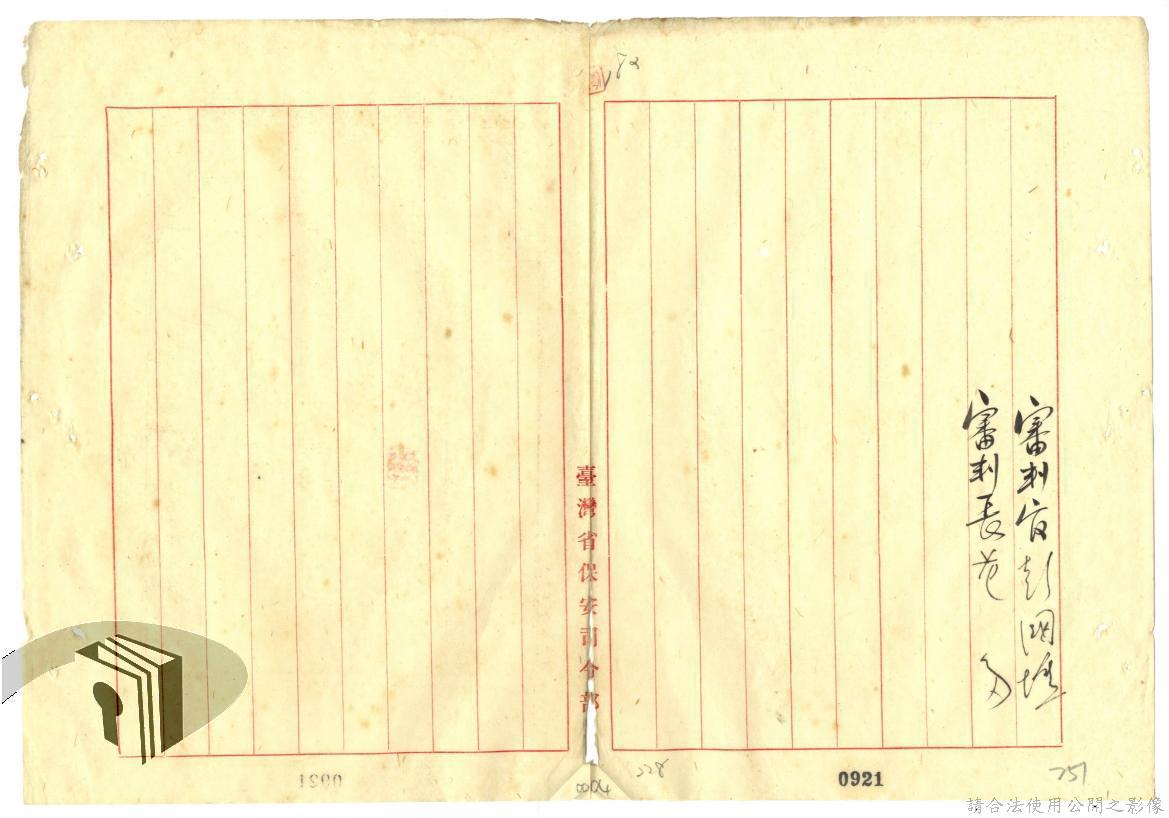 182
審判官彭國壎
審判長范 明
臺灣省保安司令部
228
0921
251
0004
0921
請合法使用公開之影像